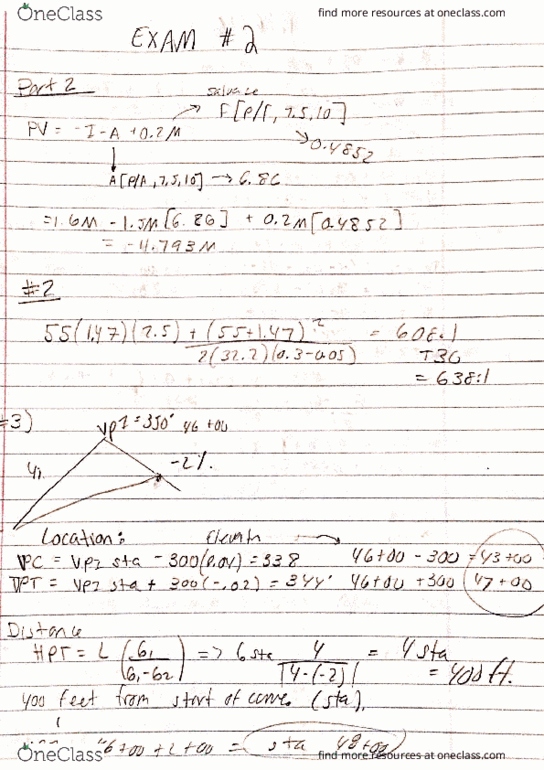 OneClass find more resources at oneclass.com
EXAM #2
Part 2
salvage
F[P/F, 7.5, 10]
PV = -I - A + 0.2M
→ 0.4852
A[P/A, 7.5, 10] → 6.86
= 1.6M - 1.5M[6.86] + 0.2M[0.4852]
= -4.793M
#2
55(1.47)(2.5) + (55+1.47)² = 608.1
2(32.2)(0.3-0.05) + 30
= 638.1
=3)
= 350' 46+00
-2%.
Location: →
VPC = VPI sta - 300(0.04) = 338 46+00 - 300 = 43+00
VPT = VPI sta + 300(-.02) = 344' 46+00 + 300 47+00
Distance
HPT = L (G1 / G1-G2) => 6 sta 4 / |4-(-2)| = 4 sta
= 400 ft.
400 feet from start of curve. (sta).
6+00 + 2+00 = sta 48+00
OneClass find more resources at oneclass.com